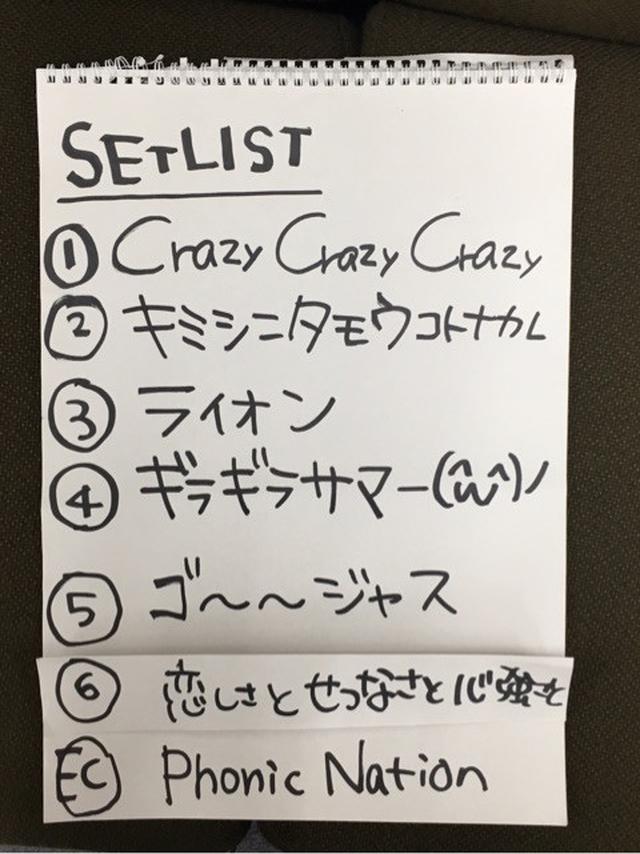 SETLIST
① Crazy Crazy Crazy
② キミシニタモウコトナカレ
③ ライオン
④ ギラギラサマー(^ω^)ノ
⑤ ゴ～～ジャス
⑥ 恋しさとせつなさと心強さと
EC Phonic Nation